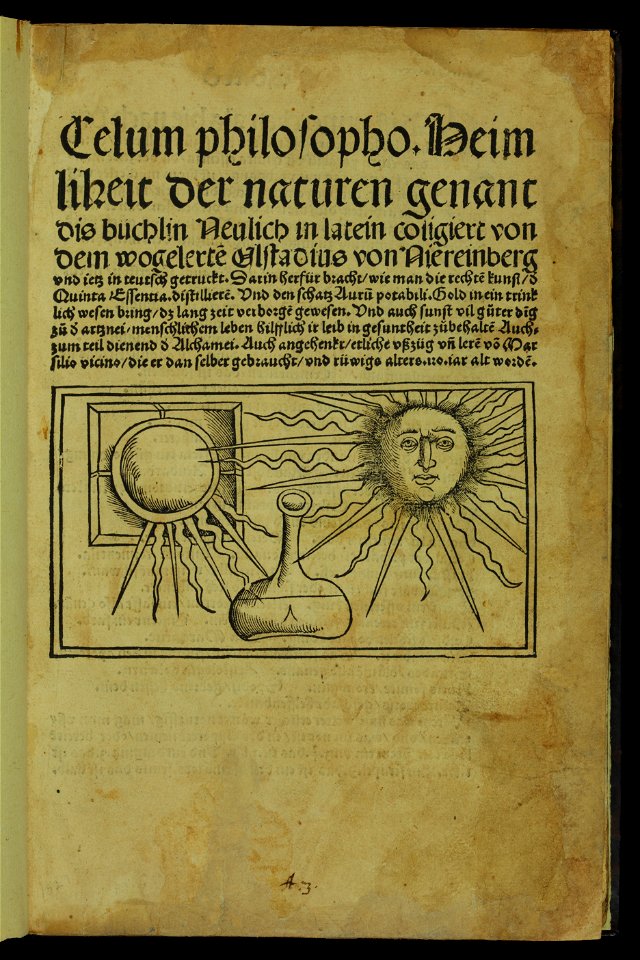 Celum philosopho. Heim
likeit der naturen genant
dis büchlin Neulich in latein coligiert von
dem wogelertē Ulstadius von Niereinberg
vnd ietz in teutsch getruckt. Darin herfür bracht/wie man die rechtē kunst/d
Quinta Essentia. distillierē. Und den schatz Aurū potabili. Gold in ein trink
lich wesen bring/dz lang zeit verborgē gewesen. Und auch sunst vil gůter dīg
zů d artznei/menschlichem leben hilfflich ir leib in gesuntheit zůbehaltē Auch
zum teil dienend d Alchamei. Auch angehenkt/etliche vßzüg vñ lerē vō Mar
silio vicino/die er dan selber gebraucht/vnd rüwigs alters. iar alt wordē.
A 3.